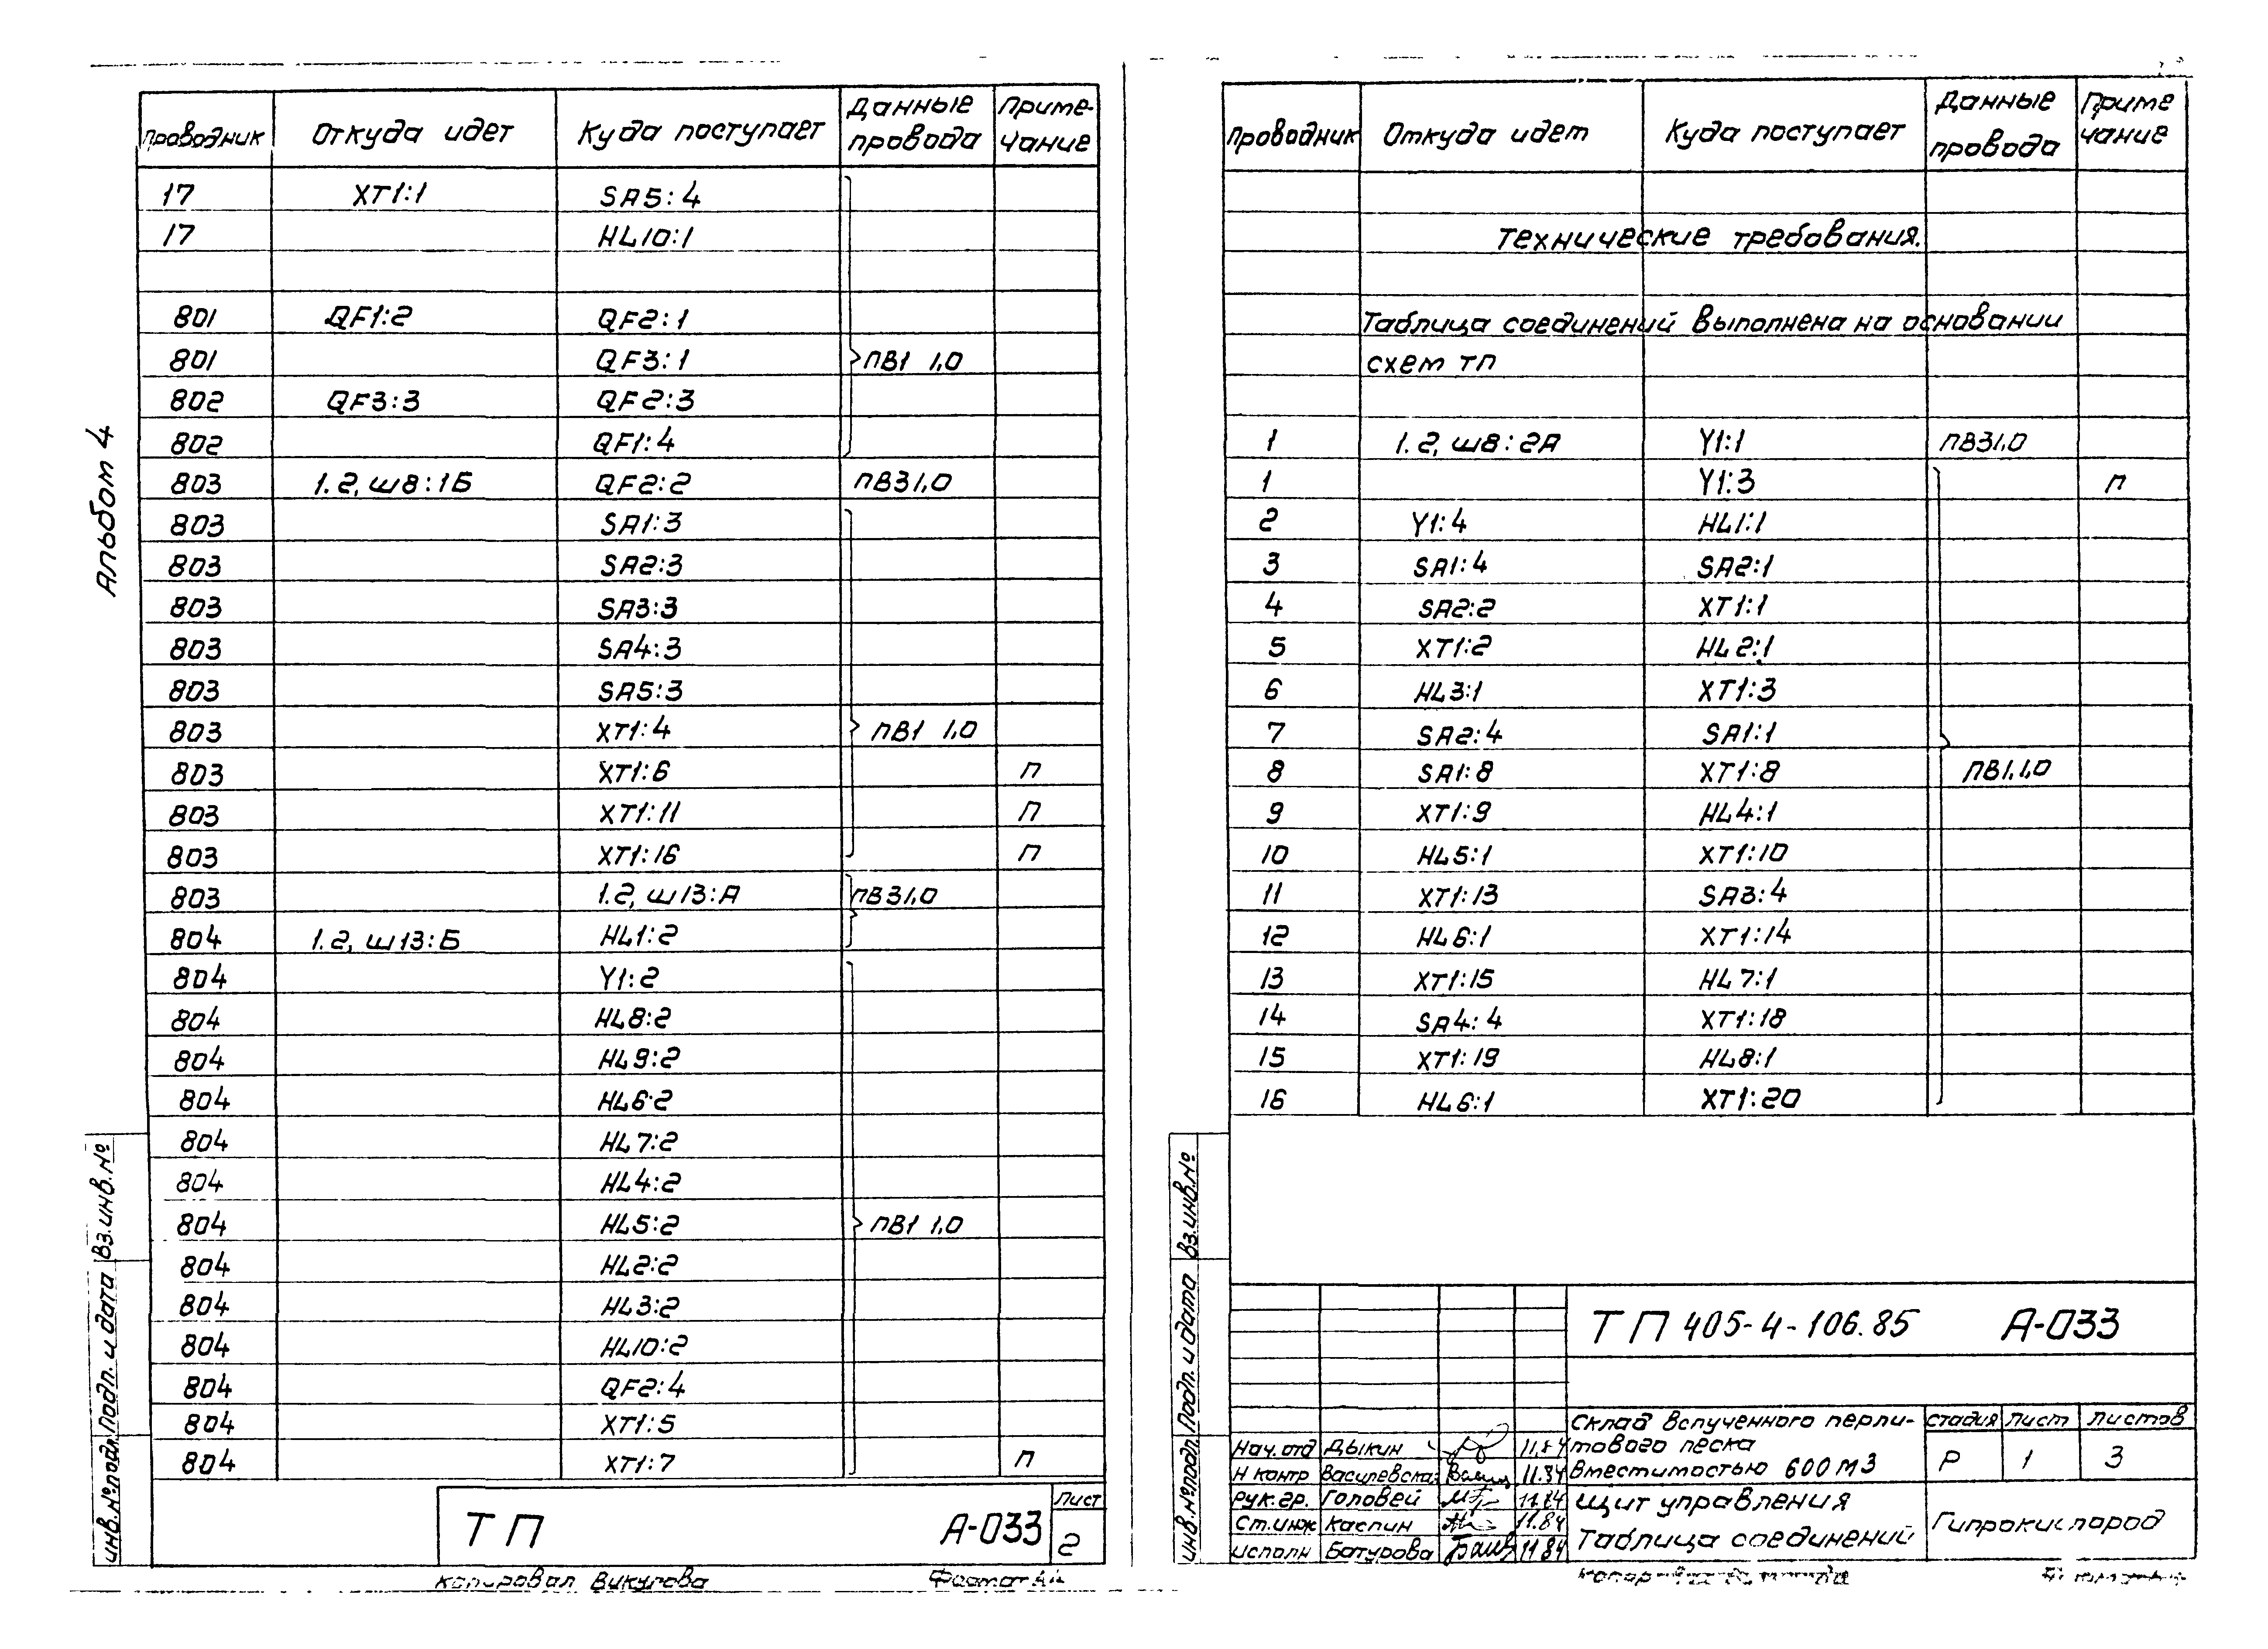 Альбом 4
Проводник Откуда идет Куда поступает Данные провода Приме-чание
17 XT1:1 SA5:4
17 HL10:1
801 QF1:2 QF2:1
801 QF3:1 ПВ1 1,0
802 QF3:3 QF2:3
802 QF1:4
803 1.2, ш8:1Б QF2:2 ПВ31,0
803 SA1:3
803 SA2:3
803 SA3:3
803 SA4:3
803 SA5:3
803 XT1:4 ПВ1 1,0
803 XT1:6 П
803 XT1:11 П
803 XT1:16 П
803 1.2, ш13:А ПВ31,0
804 1.2, ш13:Б HL1:2
804 Y1:2
804 HL8:2
804 HL9:2
804 HL6:2
804 HL7:2
804 HL4:2
804 HL5:2 ПВ1 1,0
804 HL2:2
804 HL3:2
804 HL10:2
804 QF2:4
804 XT1:5
804 XT1:7 П
Вз.инв.№
Подп. и дата
инв.№подл.
ТП А-033
Лист
2
копировал Викулова Формат А4
Проводник Откуда идет Куда поступает Данные провода Приме чание
Технические требования.
Таблица соединений выполнена на основании
схем ТП
1 1.2, ш8:2А Y1:1 ПВ31,0
1 Y1:3 П
2 Y1:4 HL1:1
3 SA1:4 SA2:1
4 SA2:2 XT1:1
5 XT1:2 HL2:1
6 HL3:1 XT1:3
7 SA2:4 SA1:1
8 SA1:8 XT1:8 ПВ1.1,0
9 XT1:9 HL4:1
10 HL5:1 XT1:10
11 XT1:13 SA3:4
12 HL6:1 XT1:14
13 XT1:15 HL7:1
14 SA4:4 XT1:18
15 XT1:19 HL8:1
16 HL6:1 XT1:20
Вз.инв.№
Подп. и дата
инв.№подл.
ТП 405-4-106.85 А-033
Склад вспученного перли-
тового песка
вместимостью 600 м3
стадия Лист Листов
Р 1 3
Нач.отд Дыкин 11.84
Н контр Василевска 11.84
Рук.гр. Головей 11.84
Ст.инж Каспин 11.84
исполн Батурова 11.84
Щит управления
Таблица соединений
Гипрокислород